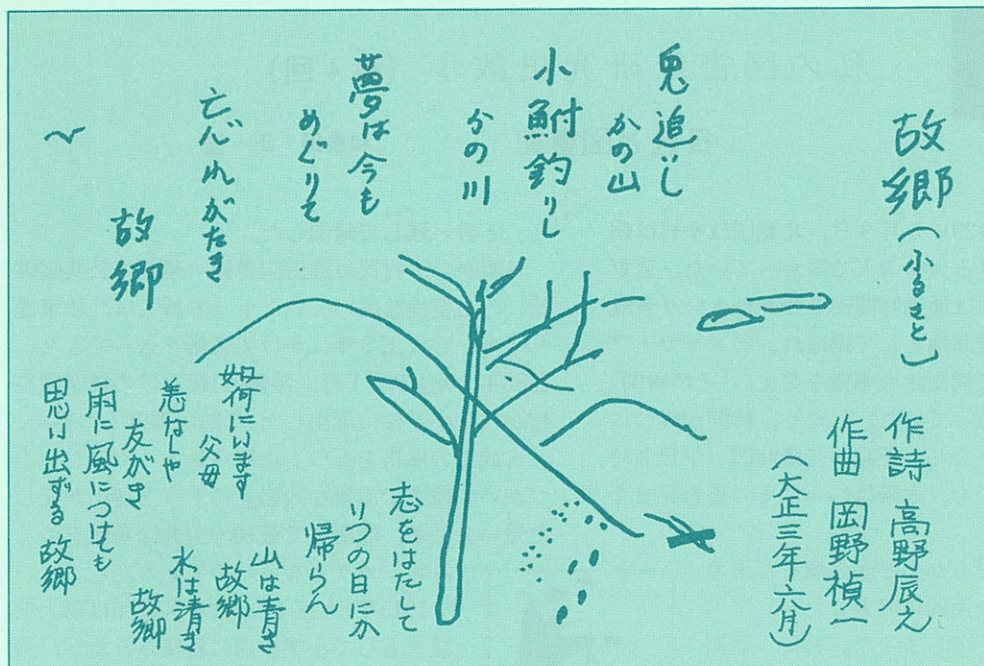 故郷(ふるさと)
作詩 高野辰之
作曲 岡野禎一
(大正三年六月)
兎追いし
かの山
小鮒釣りし
かの川
夢は今も
めぐりて
忘れがたき
故郷
如何にいます
父母
恙なしや
友がき
雨に風につけても
思い出ずる故郷
志をはたして
いつの日にか
帰らん
山は青き
故郷
水は清き
故郷